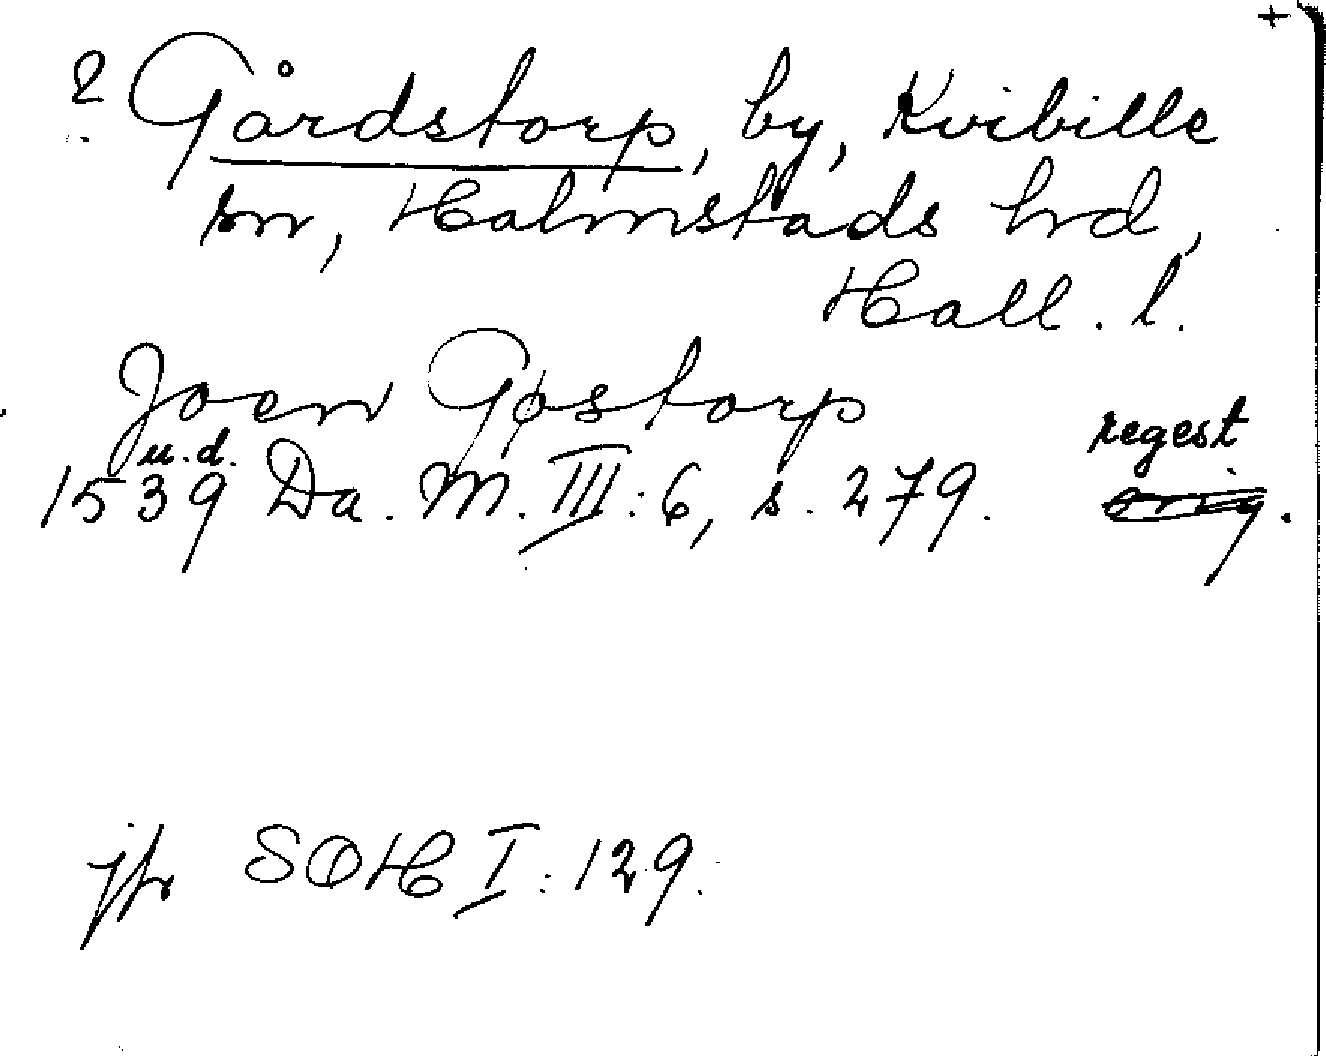 +
? Gårdstorp, by, Kvibille
sn, Halmstads hrd,
Hall. l.
Joen Gøstorp
regest
u.d.
1539 Da. M. III: 6, s. 279. orig.
jfr SOH I: 129.